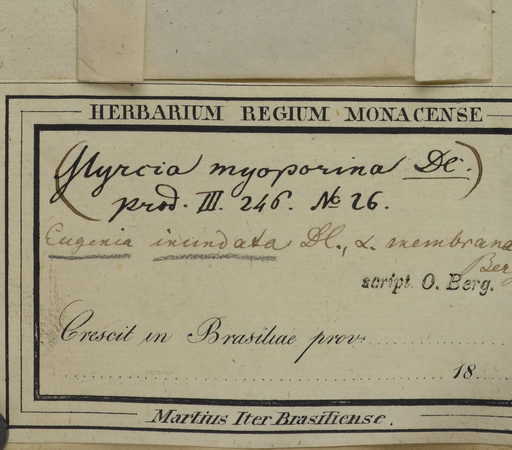 HERBARIUM REGIUM MONACENSE
(Myrcia myoporina DC.)
prod. III. 246. No 26.
Eugenia inundata DC., α. membrana
Berg
script. O. Berg.
Crescit in Brasiliae prov.
18
Martius Iter Brasiliense.